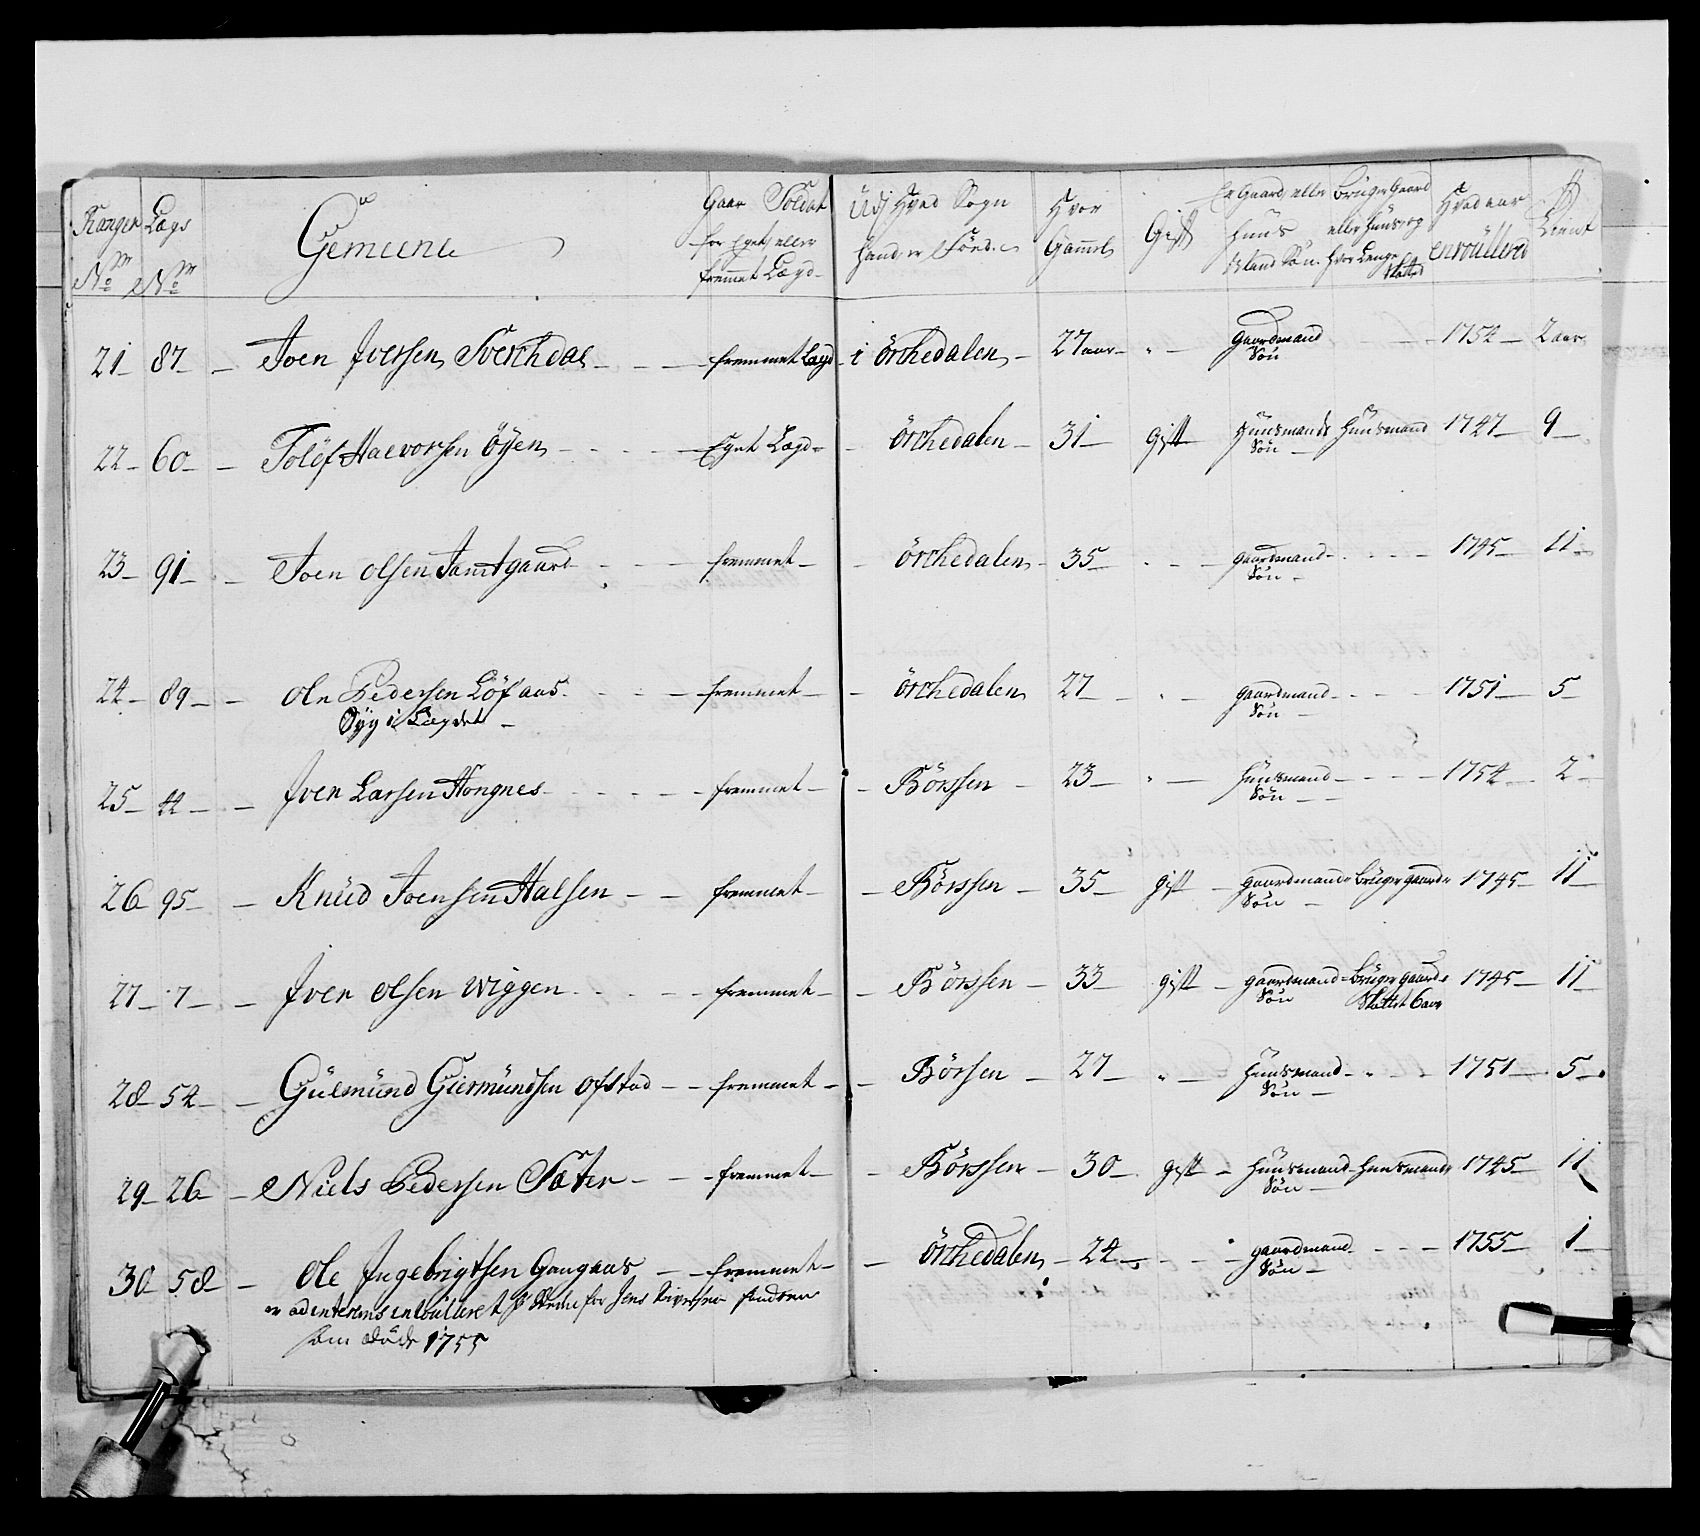 Ranger Nr. Lægs Nr. Gemeene Gaar Soldat for Eget eller fremmet Lægd Udj Hvad Sogn hand er Född Hvor Gammel Gift Er Gaard eller Huus Mands Sön Bruger Gaard eller Huus og Hvor Længe skattet Hvad aar enroulleret Tient
21 87 Joen Jversen Sverchdal fremmet Lægd i Örchedalen 27 aar Gaardmand Sön 1754 2 aar
22 60 Tolöf Halvorsen Öyen Eget Lægd Örchedalen 31 Gift Huusmands Sön Huusmand 1747 9
23 91 Joen Olsen Jamtgaard fremmet Örchedalen 35 gaardmand Sön 1745 11
24 89 Ole Pedersen Löfaas fremmet Örchedalen 27 gaardmand Sön 1751 5
Syg i Lægdet
25 44 Jver Larsen Hongnes fremmet Börssen 23 Huusmand Sön 1754 2
26 95 Knüd Joensen Halsen fremmet Börssen 35 gift gaardmands Sön Brüger gaard 1745 11
27 7 Jver Olsen Wiggen fremmet Börssen 33 gift gaardmand Sön Brüger gaard Skattet 6 aar 1745 11
28 54 Gülmünd Giermündsen Ofstad fremmet Börsen 27 Huusmand Sön 1751 5
29 26 Niels Pedersen Sæter fremmet Börssen 30 gift Huusmand Sön Huusmand 1745 11
30 58 Ole Jngebrigtsen Gangaas fremmet Örchedalen 24 gaardmand Sön 1755 1
er ad interims enroulleret for Jens
som döde 1755